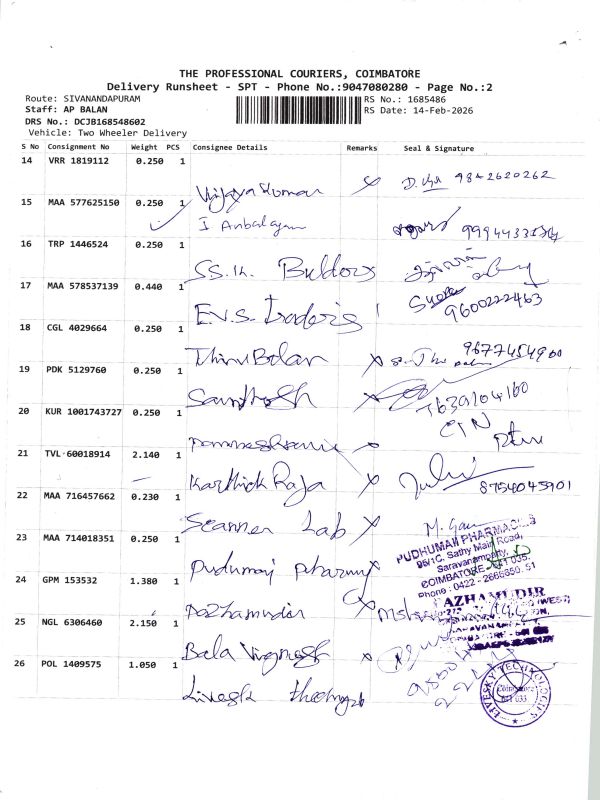 THE PROFESSIONAL COURIERS, COIMBATORE
Delivery Runsheet - SPT - Phone No.:9047080280 - Page No.:2
Route: SIVANANDAPURAM
RS No.: 1685486
Staff: AP BALAN
RS Date: 14-Feb-2026
DRS No.: DCJB168548602
Vehicle: Two Wheeler Delivery
S No Consignment No Weight PCS Consignee Details Remarks Seal & Signature
14 VRR 1819112 0.250 1
Vijaya Kumar 9842620262
15 MAA 577625150 0.250 1
I Anbalagan
16 TRP 1446524 0.250 1
S.S.K. Builders
17 MAA 578537139 0.440 1
E.V.S. Traders 9600222463
18 CGL 4029664 0.250 1
Thiru Balan 9677454900
19 PDK 5129760 0.250 1
Santhosh 7639204160
20 KUR 1001743727 0.250 1
21 TVL 60018914 2.140 1
Karthick Raja 8754045901
22 MAA 716457662 0.230 1
Scanner Lab
23 MAA 714018351 0.250 1
PUDHUMAI PHARMACIES
95/1C, Sathy Main Road,
Saravanampatty,
COIMBATORE - 641 035.
Phone : 0422 - 2666850, 51
Pudumai pharmacy
24 GPM 153532 1.380 1
PAZHAMUDIR
Pazhamudir
25 NGL 6306460 2.150 1
Bala Vignesh
26 POL 1409575 1.050 1
LIVESKY TECHNOLOGIES
Coimbatore
641 035